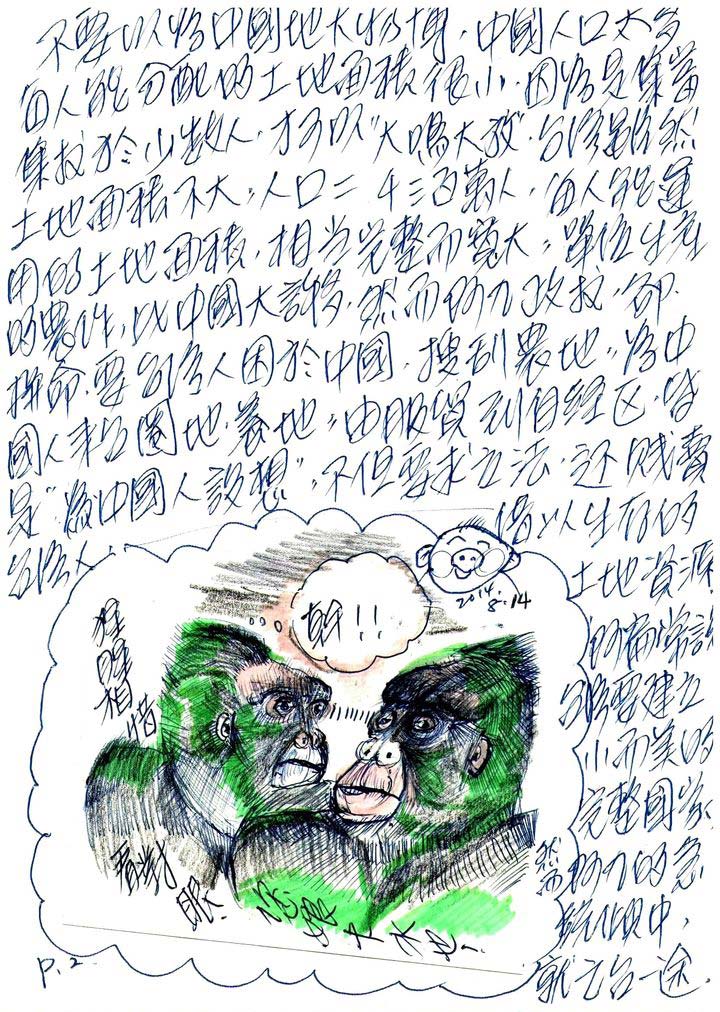 不要以為中國地大物博,中國人口太多
每人能分配的土地面積很小,因為是集富
集权於少数人,才可以"大鳴大放",台湾雖然
土地面積不大,人口二千三百萬人,每人能運
用的土地面積,相当完整而寬大,單位生產
的農作,比中國大許多,然而阿九政权,卻
拚命要台湾人困於中國,搜刮農地,為中
國人来台圈地、養地,由服貿到自經区,皆
是"為中國人設想",不但要求立法,还賤賣
台湾人
借以生存的
土地資源
2014.8.14
幹!!
猩猩相惜
看對眼
台湾要建立
小而美的
完整國家
然而阿九的急
統傾中,
就元台一途
P.2